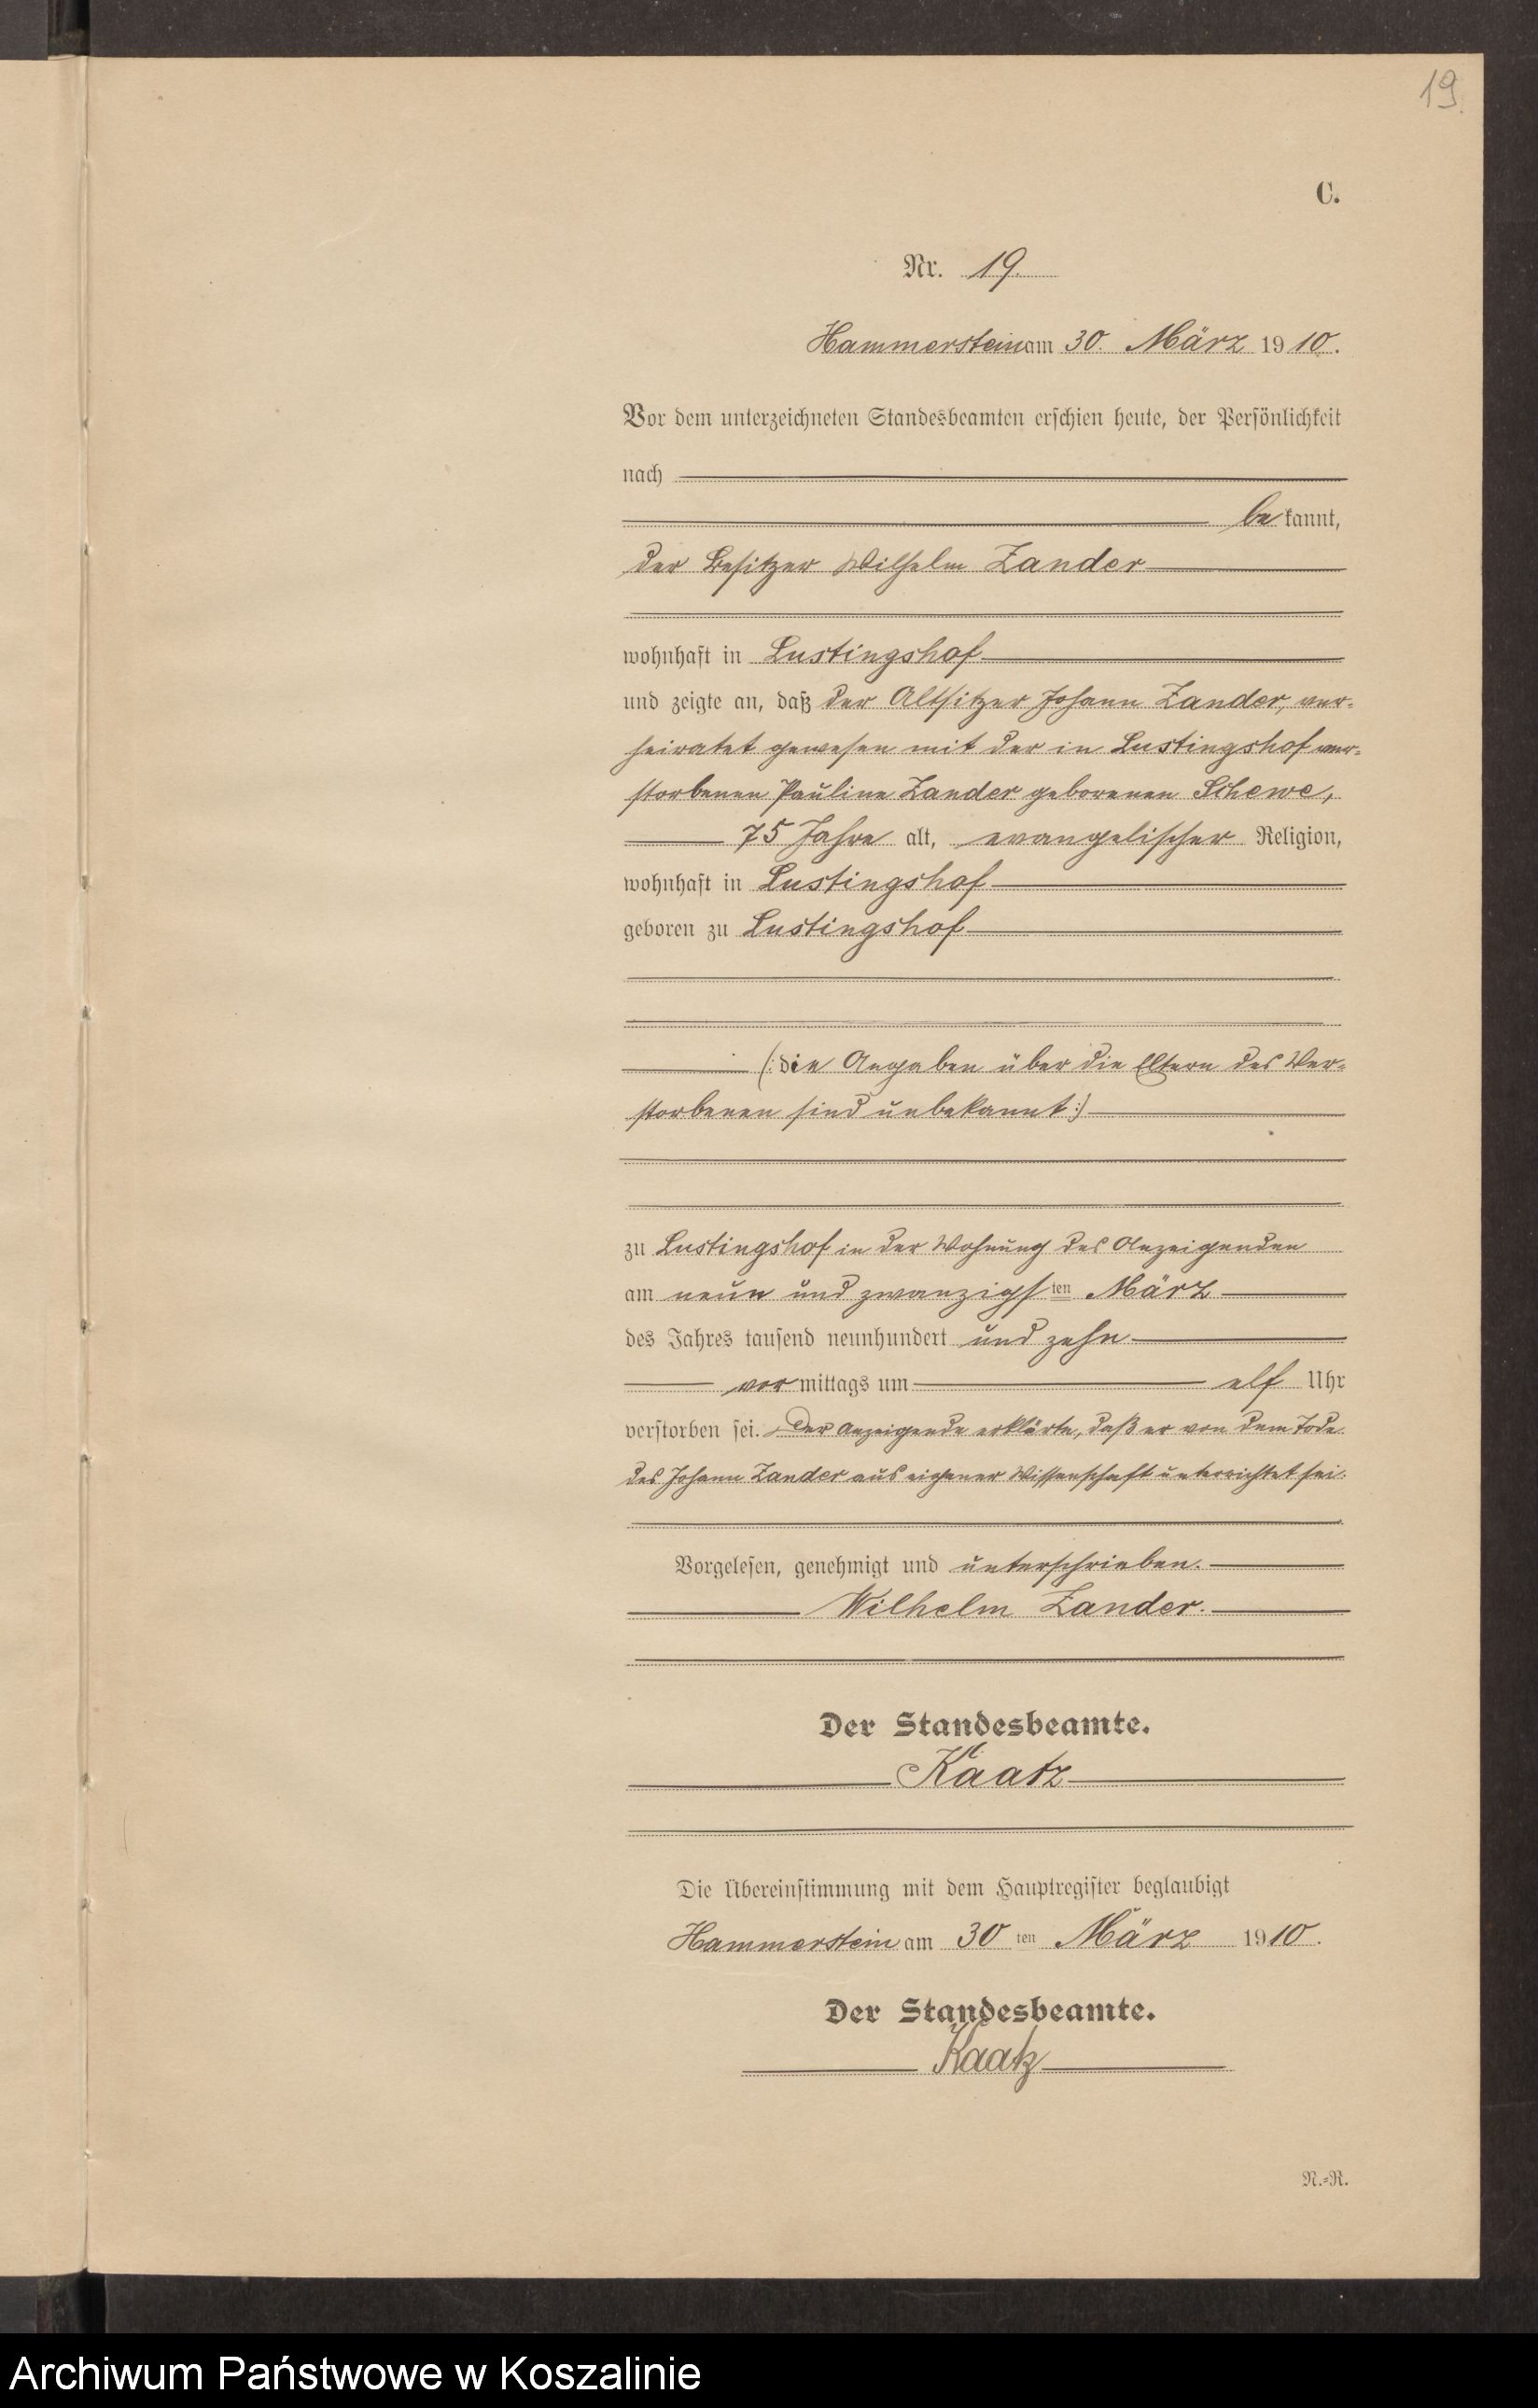 19.
C.
Nr. 19.
Hammerstein am 30. März 1910.
Vor dem unterzeichneten Standesbeamten erschien heute, der Persönlichkeit
nach
bekannt,
der Besitzer Wilhelm Zander
wohnhaft in Lustingshof
und zeigte an, daß der Altsitzer Johann Zander, ver-
heiratet gewesen mit der in Lustingshof ver-
storbenen Pauline Zander geborenen Schewe,
75 Jahre alt, evangelischer Religion,
wohnhaft in Lustingshof
geboren zu Lustingshof
(: die Angaben über die Eltern des Ver-
storbenen sind unbekannt :)
zu Lustingshof in der Wohnung des Anzeigenden
am neun und zwanzigsten März
des Jahres tausend neunhundert und zehn
vormittags um elf Uhr
verstorben sei. Der Anzeigende erklärte, daß er von dem Tode
des Johann Zander aus eigener Wissenschaft unterrichtet sei.
Vorgelesen, genehmigt und unterschrieben.
Wilhelm Zander.
Der Standesbeamte.
Kaatz
Die Übereinstimmung mit dem Hauptregister beglaubigt
Hammerstein am 30ten März 1910.
Der Standesbeamte.
Kaatz
N.-R.
Archiwum Państwowe w Koszalinie